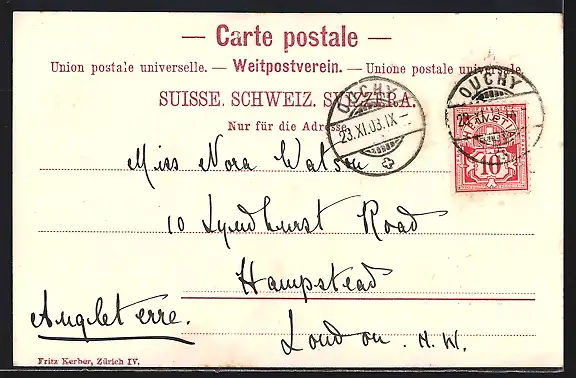 — Carte postale —
Union postale universelle. — Weltpostverein. — Unione postale universale.
SUISSE. SCHWEIZ. SVIZZERA.
Nur für die Adresse.
OUCHY
23.XI.03.IX
OUCHY
10
Miss Nora Watson
10 Lyndhurst Road
Hampstead
Angleterre.
London. N.W.
Fritz Kerber, Zürich IV.